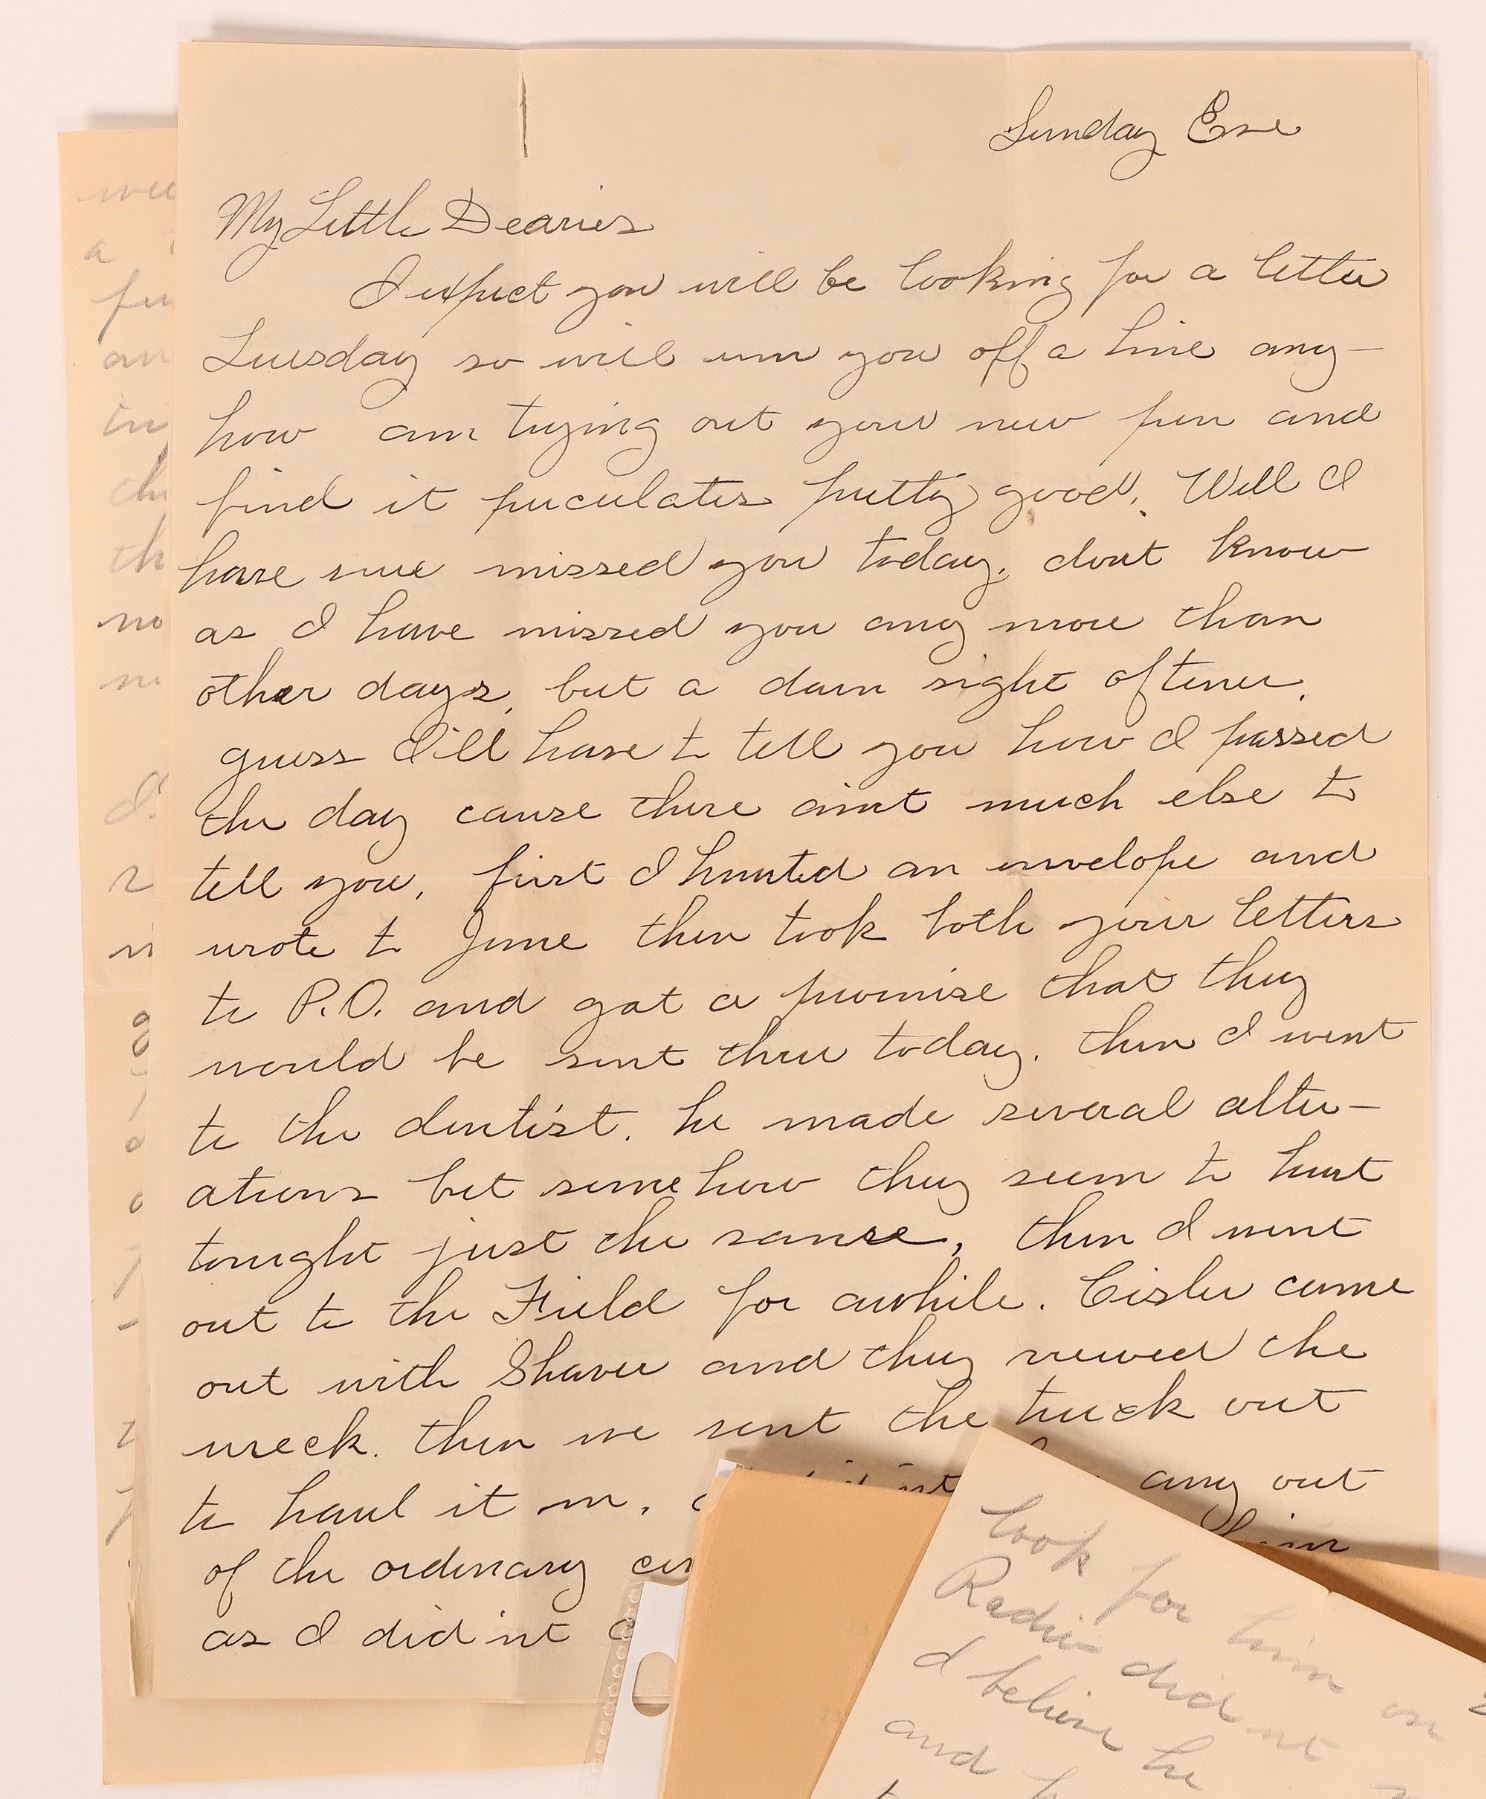 Sunday Eve
My Little Dearies
I expect you will be looking for a letter
Tuesday so will run you off a line any-
how am trying out your new pen and
find it perculates pretty good. Well I
have sure missed you today. dont know
as I have missed you any more than
other days, but a darn sight oftener.
guess I'll have to tell you how I passed
the day cause there aint much else to
tell you. first I hunted an envelope and
wrote to June then took both your letters
to P.O. and got a promise that they
would be sent thru today. then I went
to the dentist. he made several alter-
ations but some how they seem to hurt
tonight just the same, then I went
out to the Field for awhile. Cisler came
out with Shaver and they viewed the
wreck. then we sent the truck out
to haul it in. any out
of the ordinary
as I did'nt
him
look for him on
Radio did nt
I believe he
and
wee
a
an
th
no